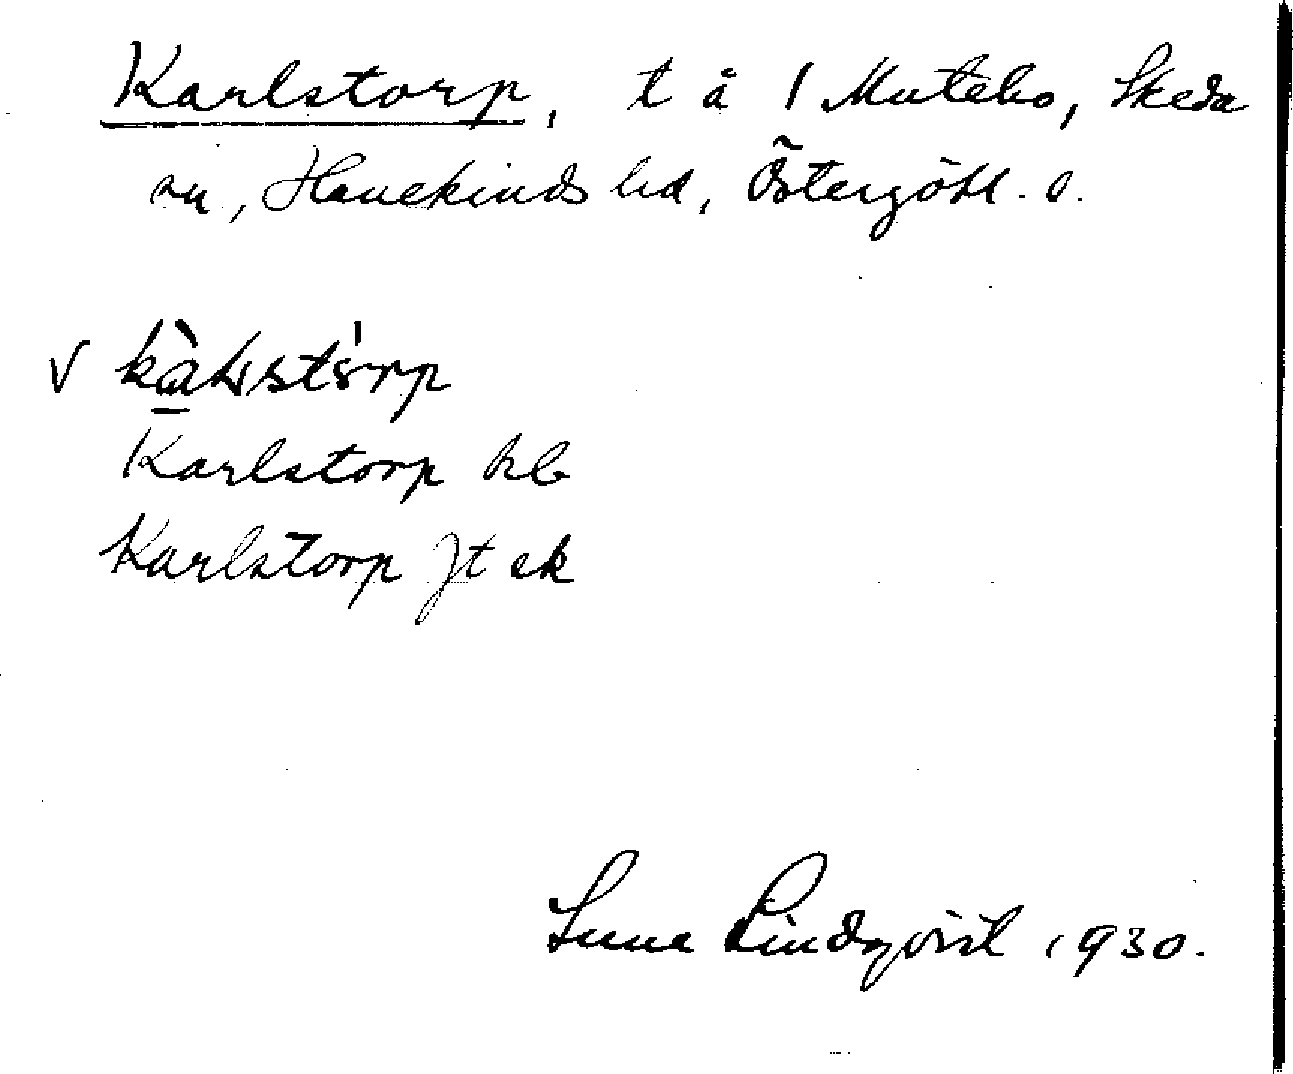 Karlstorp, t å 1 Mutebo, Skeda
sn, Hanekinds hd, Östergötl. l.
Karlstorp hb
Karlstorp Jt ek
Sune Lindqvist 1930.